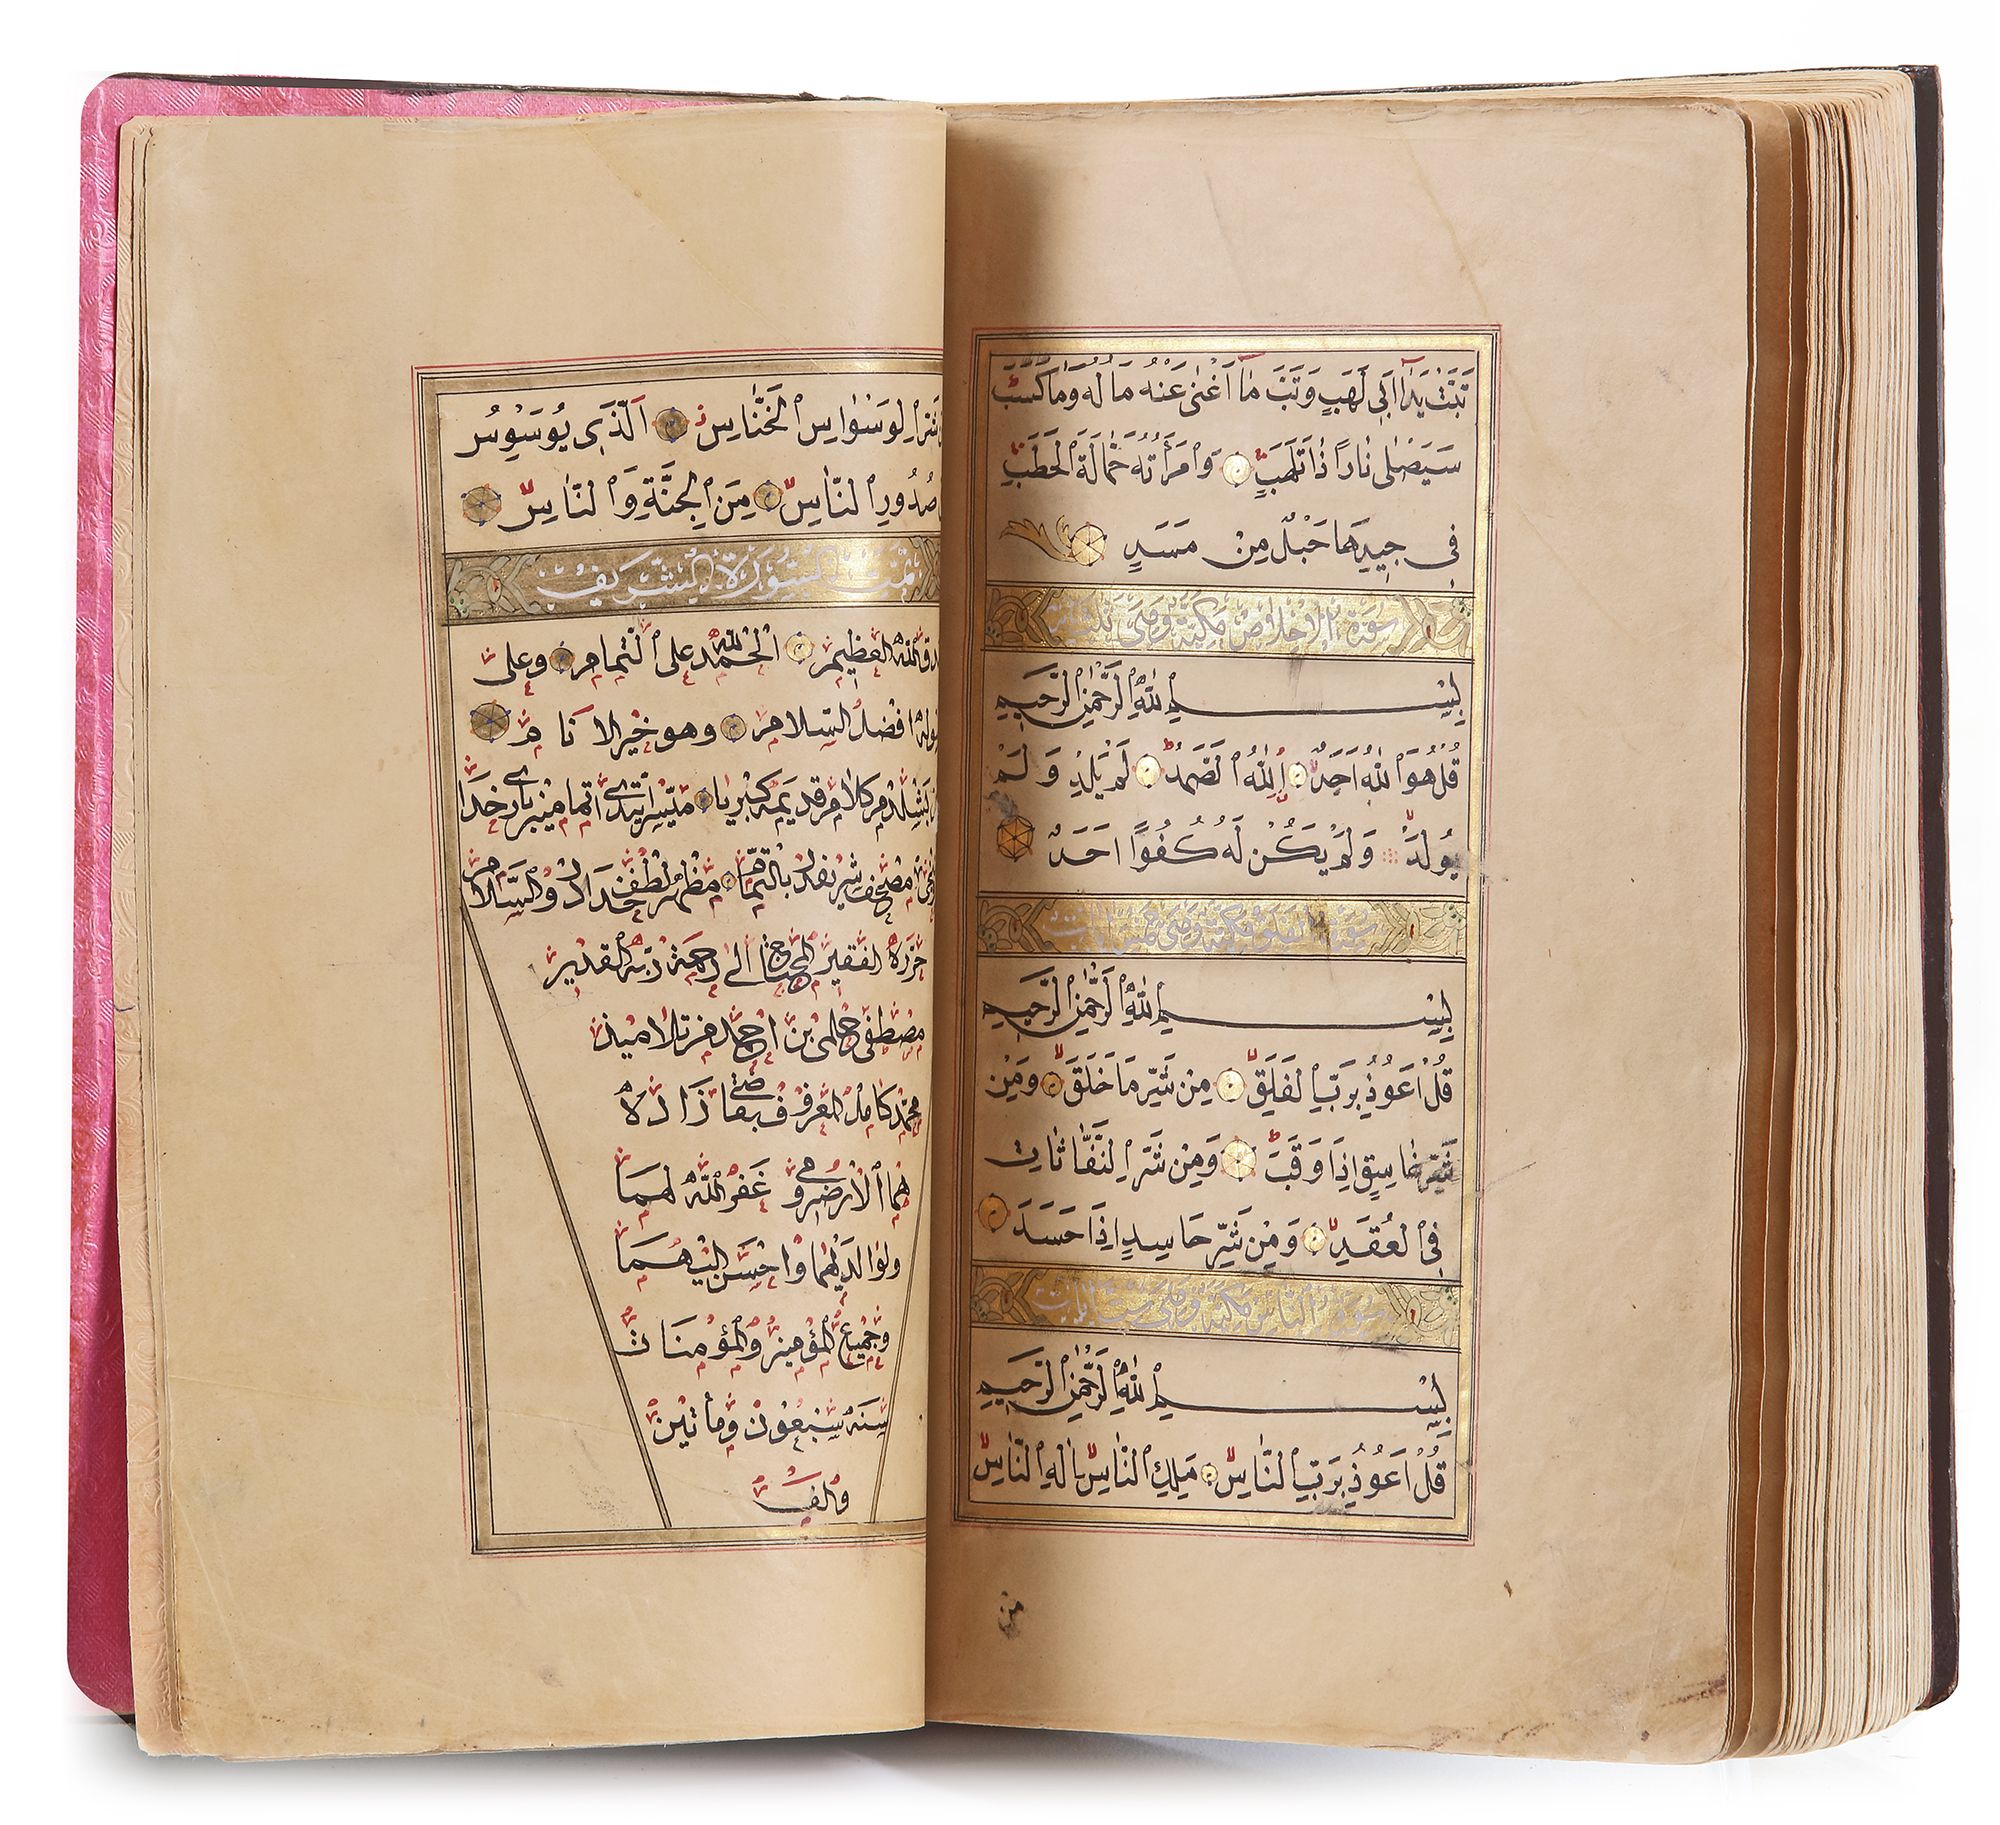 تَبَّتْ يَدَا اَبِى لَهَبٍ وَتَبَّ مَا اَغْنٰى عَنْهُ مَا لُهُ وَمَا كَسَبَ
سَيَصْلٰى نَارًا ذَاتَ لَهَبٍ وَامْرَأَتُهُ حَمَّالَةَ الْحَطَبِ
فِى جِيدِهَا حَبْلٌ مِنْ مَسَدٍ
سورة الاخلاص مكية وهى
بِسْمِ اللّٰهِ الرَّحْمٰنِ الرَّحِيمِ
قُلْ هُوَ اللّٰهُ اَحَدٌ اَللّٰهُ الصَّمَدُ لَمْ يَلِدْ وَلَمْ
يُولَدْ وَلَمْ يَكُنْ لَهُ كُفُوًا اَحَدٌ
سورة الفلق مكية وهى خمس ايات
بِسْمِ اللّٰهِ الرَّحْمٰنِ الرَّحِيمِ
قُلْ اَعُوذُ بِرَبِّ الْفَلَقِ مِنْ شَرِّ مَا خَلَقَ وَمِنْ
شَرِّ غَاسِقٍ اِذَا وَقَبَ وَمِنْ شَرِّ النَّفَّاثَاتِ
فِى الْعُقَدِ وَمِنْ شَرِّ حَاسِدٍ اِذَا حَسَدَ
سورة الناس مكية وهى ست ايات
بِسْمِ اللّٰهِ الرَّحْمٰنِ الرَّحِيمِ
قُلْ اَعُوذُ بِرَبِّ النَّاسِ مَلِكِ النَّاسِ اِلٰهِ النَّاسِ
من
شَرِّ الْوَسْوَاسِ الْخَنَّاسِ اَلَّذِى يُوَسْوِسُ
صُدُورِ النَّاسِ مِنَ الْجِنَّةِ وَالنَّاسِ
تمت السورة الشريف
الله العظيم الحمد لله على التمام وعلى
افضل السلام وهو خير الانام
كلام قديم كبريا ميسر ايتدى اتمامين بارى خدا
مصحف شريفك بالتمام مظهر لطف والسلام
حرره الفقير المحتاج الى رحمة ربه القدير
مصطفى حلمى بن احمد من تلاميذ
محمد كامل المعروف زاده
غفر الله لهما
ولوالديهما واحسن اليهما
وجميع المؤمنين والمؤمنات
سنه سبعون ومأتين
والف